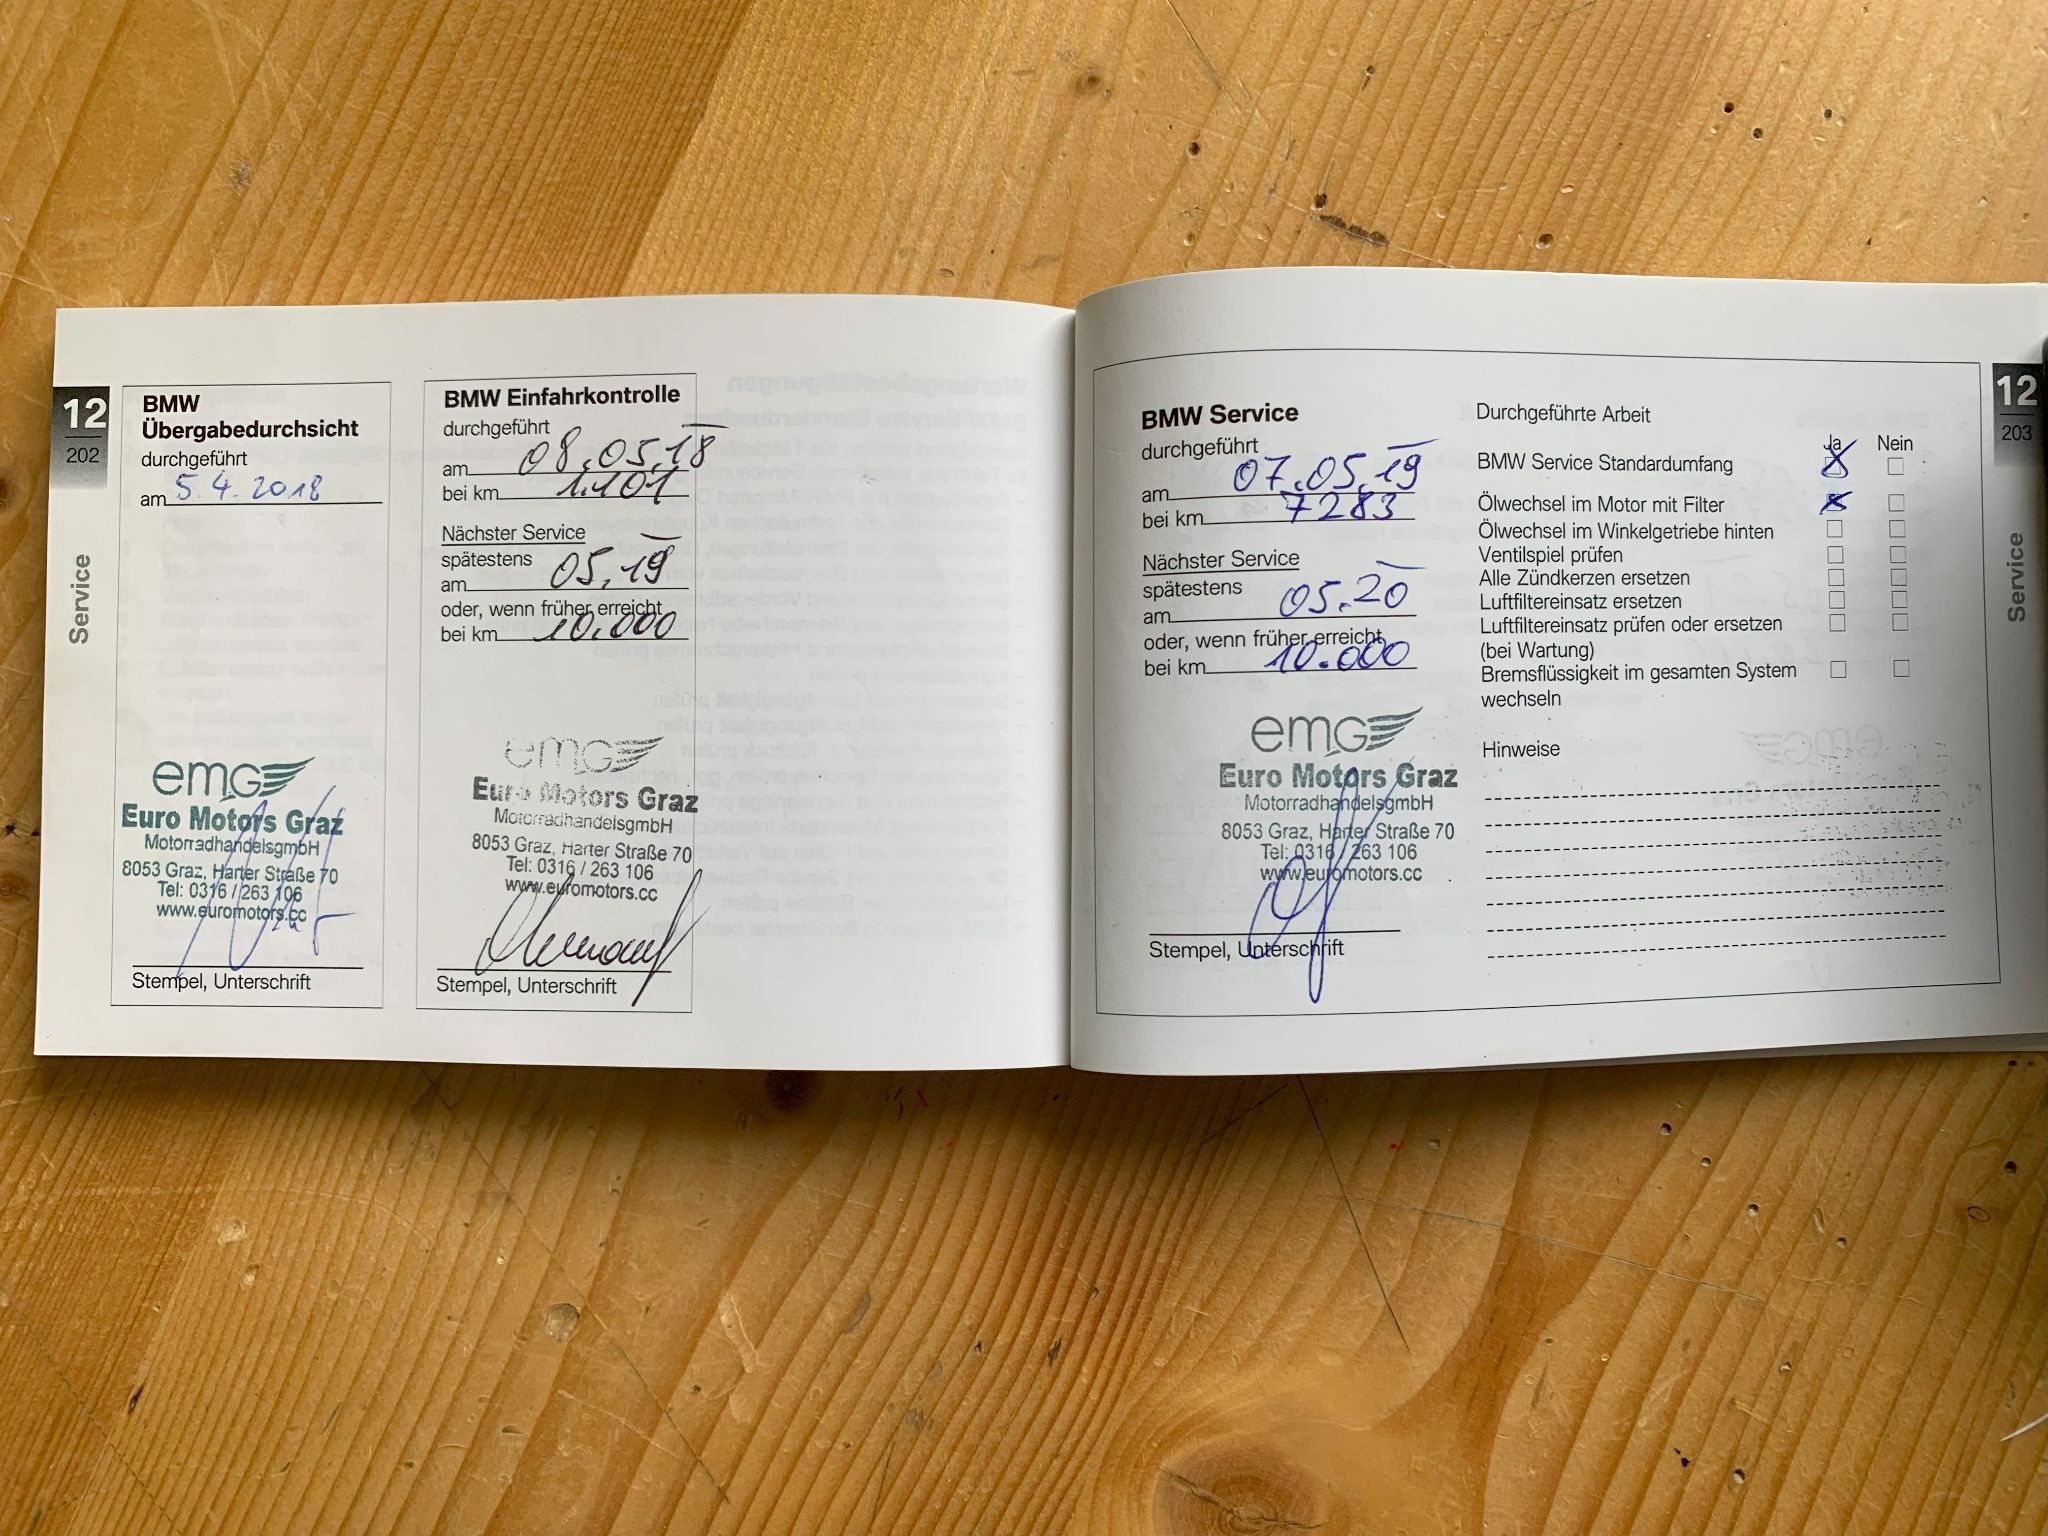 12
202
Service
BMW
Übergabedurchsicht
durchgeführt
am 5.4.2018
emG
Euro Motors Graz
MotorradhandelsgmbH
8053 Graz, Harter Straße 70
Tel: 0316 / 263 106
www.euromotors.cc
Stempel, Unterschrift
BMW Einfahrkontrolle
durchgeführt
am 08.05.18
bei km 1.101
Nächster Service
spätestens
am 05.19
oder, wenn früher erreicht
bei km 10.000
emG
Euro Motors Graz
MotorradhandelsgmbH
8053 Graz, Harter Straße 70
Tel: 0316 / 263 106
www.euromotors.cc
Stempel, Unterschrift
BMW Service
durchgeführt
am 07.05.19
bei km 7283
Nächster Service
spätestens
am 05.20
oder, wenn früher erreicht
bei km 10.000
emG
Euro Motors Graz
MotorradhandelsgmbH
8053 Graz, Harter Straße 70
Tel: 0316 / 263 106
www.euromotors.cc
Stempel, Unterschrift
Durchgeführte Arbeit
Ja Nein
BMW Service Standardumfang
Ölwechsel im Motor mit Filter
Ölwechsel im Winkelgetriebe hinten
Ventilspiel prüfen
Alle Zündkerzen ersetzen
Luftfiltereinsatz ersetzen
Luftfiltereinsatz prüfen oder ersetzen
(bei Wartung)
Bremsflüssigkeit im gesamten System
wechseln
Hinweise
12
203
Service